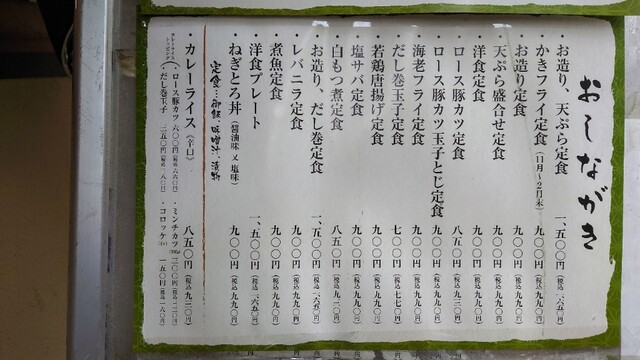 おしながき
・お造り、天ぷら定食 一、五〇〇円(税込一、六五〇円)
・かきフライ定食(11月〜2月末) 九〇〇円(税込九九〇円)
・お造り定食 九〇〇円(税込九九〇円)
・天ぷら盛合せ定食 九〇〇円(税込九九〇円)
・洋食定食 九〇〇円(税込九九〇円)
・ロース豚カツ定食 八五〇円(税込九三〇円)
・ロース豚カツ玉子とじ定食 九〇〇円(税込九九〇円)
・海老フライ定食 九〇〇円(税込九九〇円)
・だし巻玉子定食 七〇〇円(税込七七〇円)
・若鶏唐揚げ定食 九〇〇円(税込九九〇円)
・塩サバ定食 九〇〇円(税込九九〇円)
・白もつ煮定食 八五〇円(税込九三〇円)
・お造り、だし巻定食 一、五〇〇円(税込一、六五〇円)
・レバニラ定食 九〇〇円(税込九九〇円)
・煮魚定食 九〇〇円(税込九九〇円)
・洋食プレート 一、五〇〇円(税込一、六五〇円)
・ねぎとろ丼(醤油味 又 塩味) 九〇〇円(税込九九〇円)
定食…御飯、味噌汁、漬物
・カレーライス(辛口) 八五〇円(税込九三〇円)
カレーライストッピング
・ロース豚カツ 六〇〇円(税込六六〇円) ・ミンチカツ 二〇〇円(税込二二〇円)
・だし巻玉子 二五〇円 ・コロッケ 一五〇円